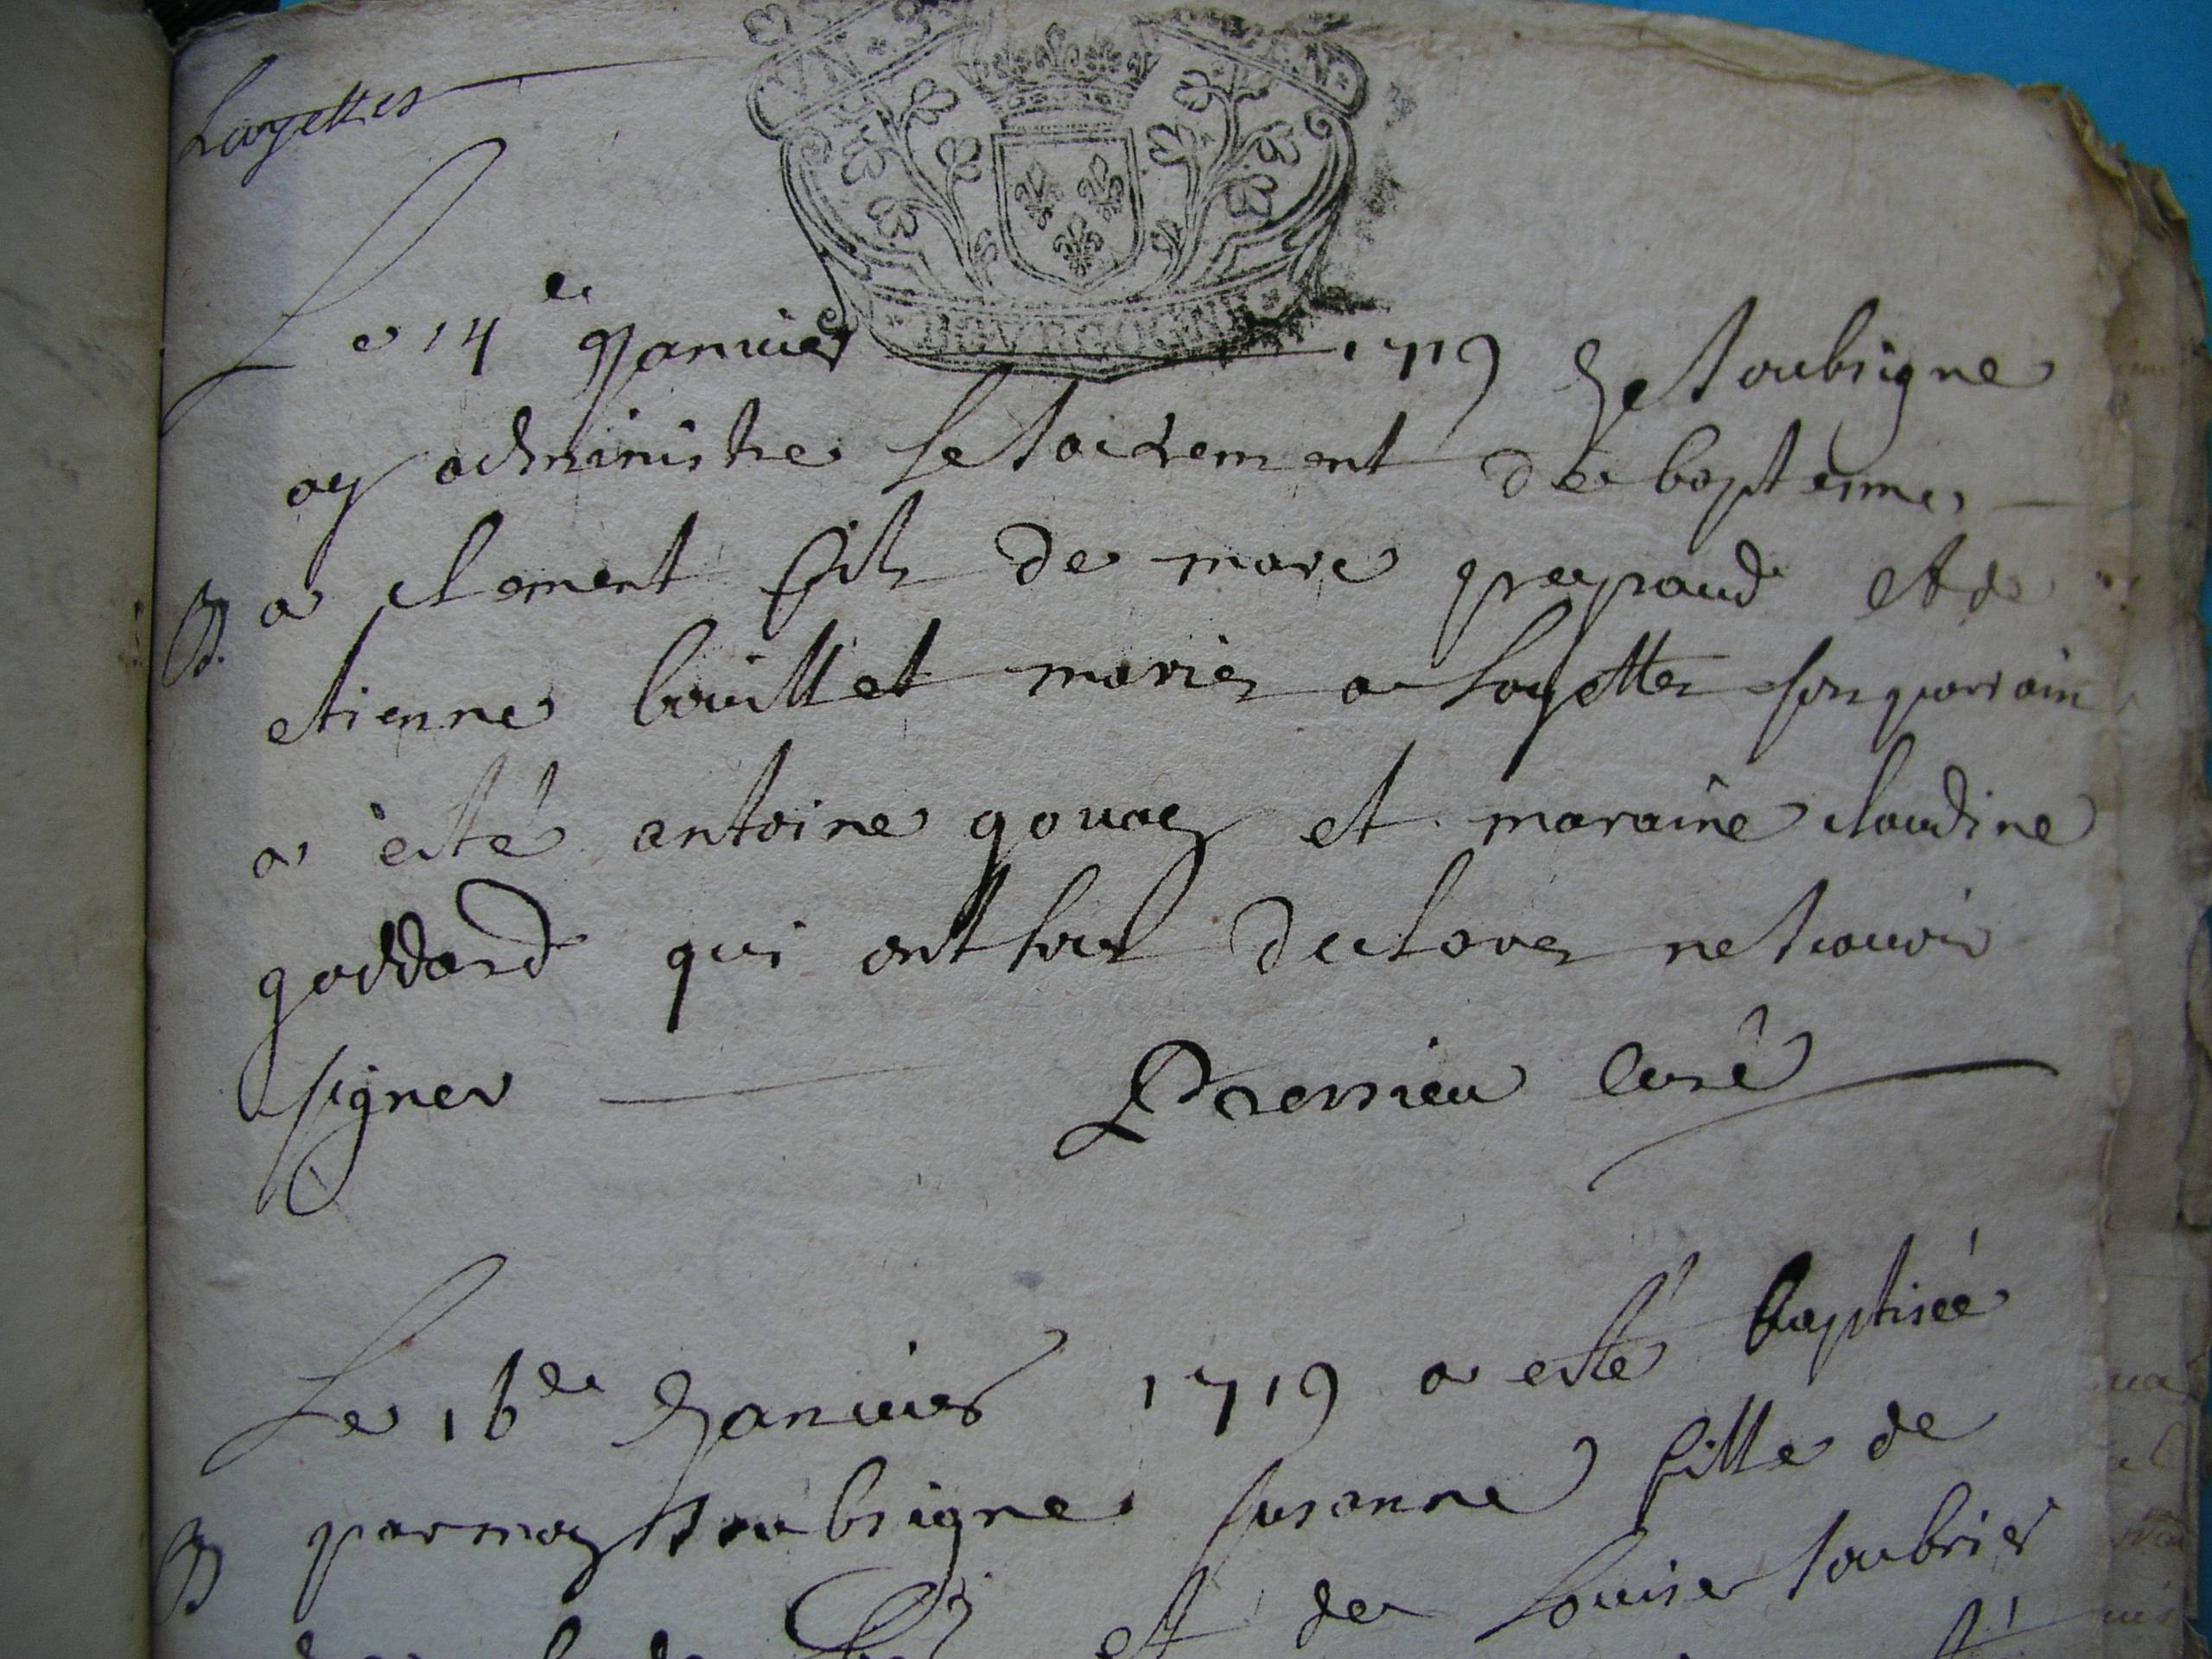 Loyettes
BOVRGOGNE
Le 14 de Janvier 1719 Je soubsigne
ay administre le sacrement de baptesme
B a clement fils de marc et de
etienne bouillet maries a loyettes son parrain
a esté antoine gouag et maraine claudine
goddard qui ont tous declares ne scavoir
signer Premieu curé
Le 16 de Janvier 1719 a esté baptisée
B par moy soubsigne susanne fille de
et de louise soubrier